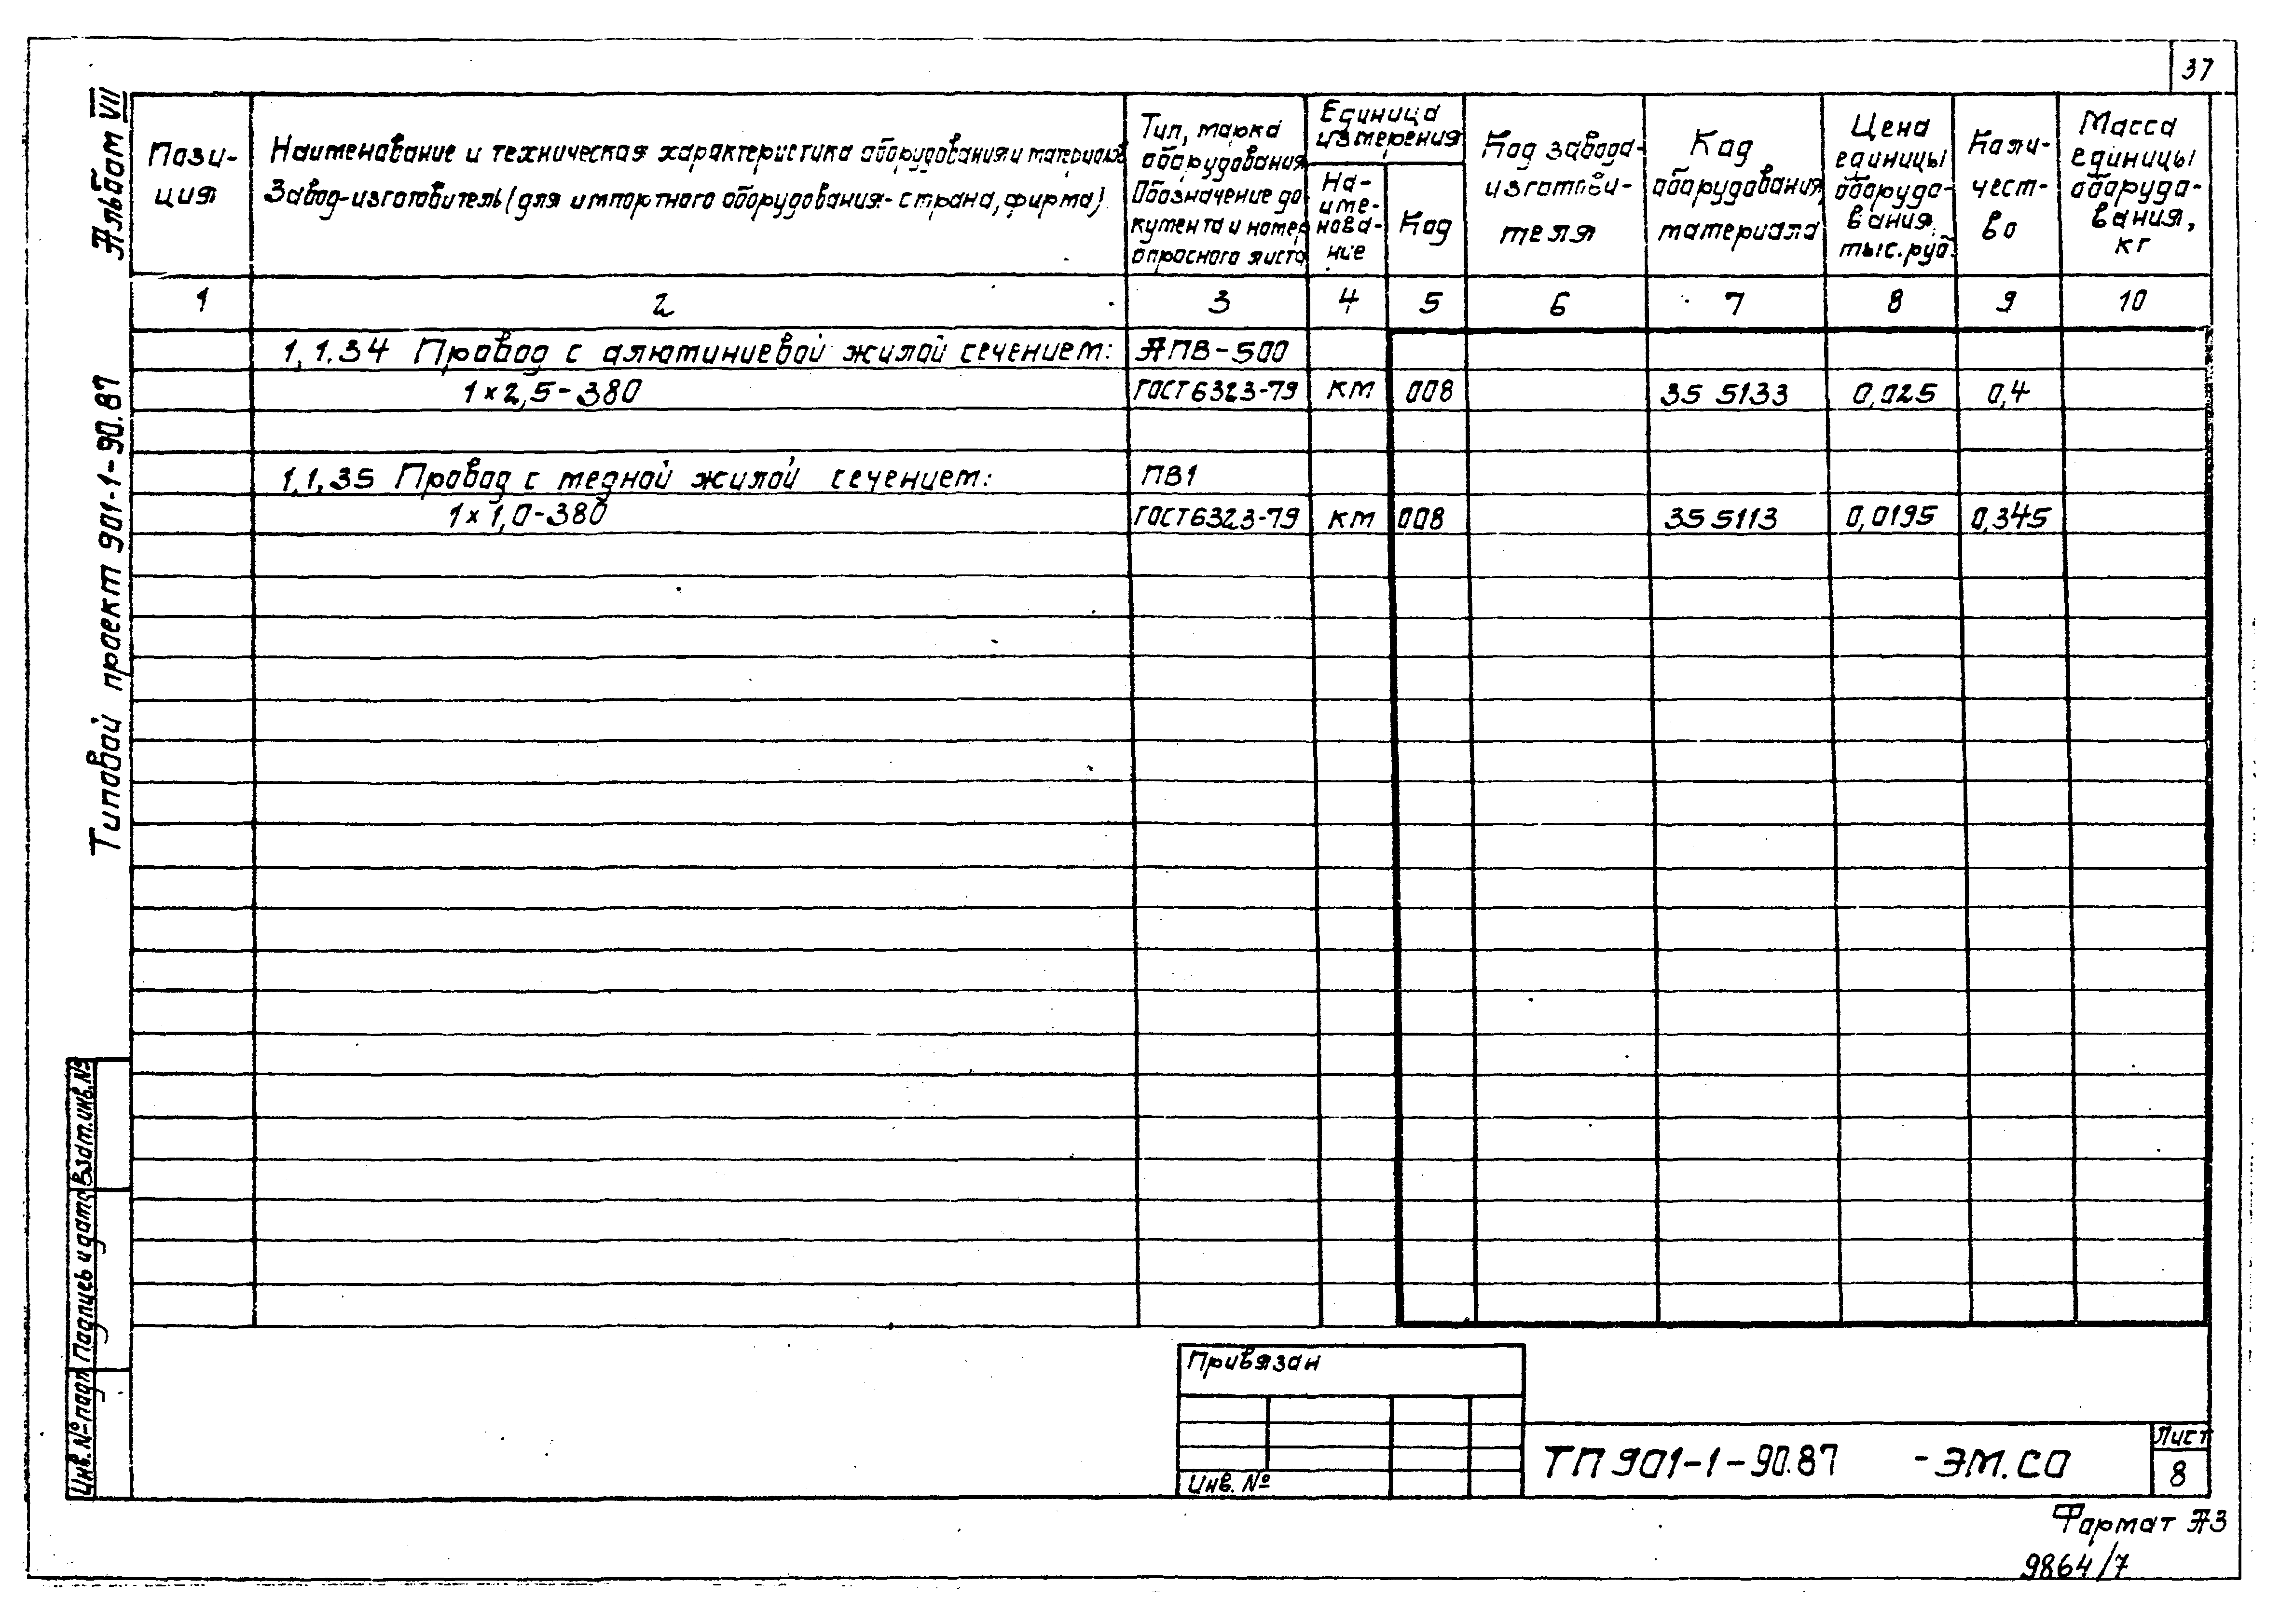 37
Альбом VII
Типовой проект 901-1-90.87
Пози-
ция
Наименование и техническая характеристика оборудования и материалов
Завод-изготовитель (для импортного оборудования - страна, фирма).
Тип, марка
оборудования
Обозначение до
кумента и номер
опросного листа
Единица
измерения
На-
име-
нова-
ние
Код
Код завода-
изготови-
теля
Код
оборудования,
материала
Цена
единицы
оборудо-
вания,
тыс.руб.
Коли-
чест-
во
Масса
единицы
оборудо-
вания,
кг
1 2 3 4 5 6 7 8 9 10
1.1.34 Провод с алюминиевой жилой сечением: АПВ-500
1×2,5-380 ГОСТ 6323-79 км 008 35 5133 0,025 0,4
1.1.35 Провод с медной жилой сечением: ПВ1
1×1,0-380 ГОСТ 6323-79 км 008 35 5113 0,0195 0,345
Взам.инв.№
Подпись и дата
Инв.№ подл
Привязан
Инв. №
ТП 901-1-90.87 -ЭМ.СО
Лист
8
Формат А3
9864/7